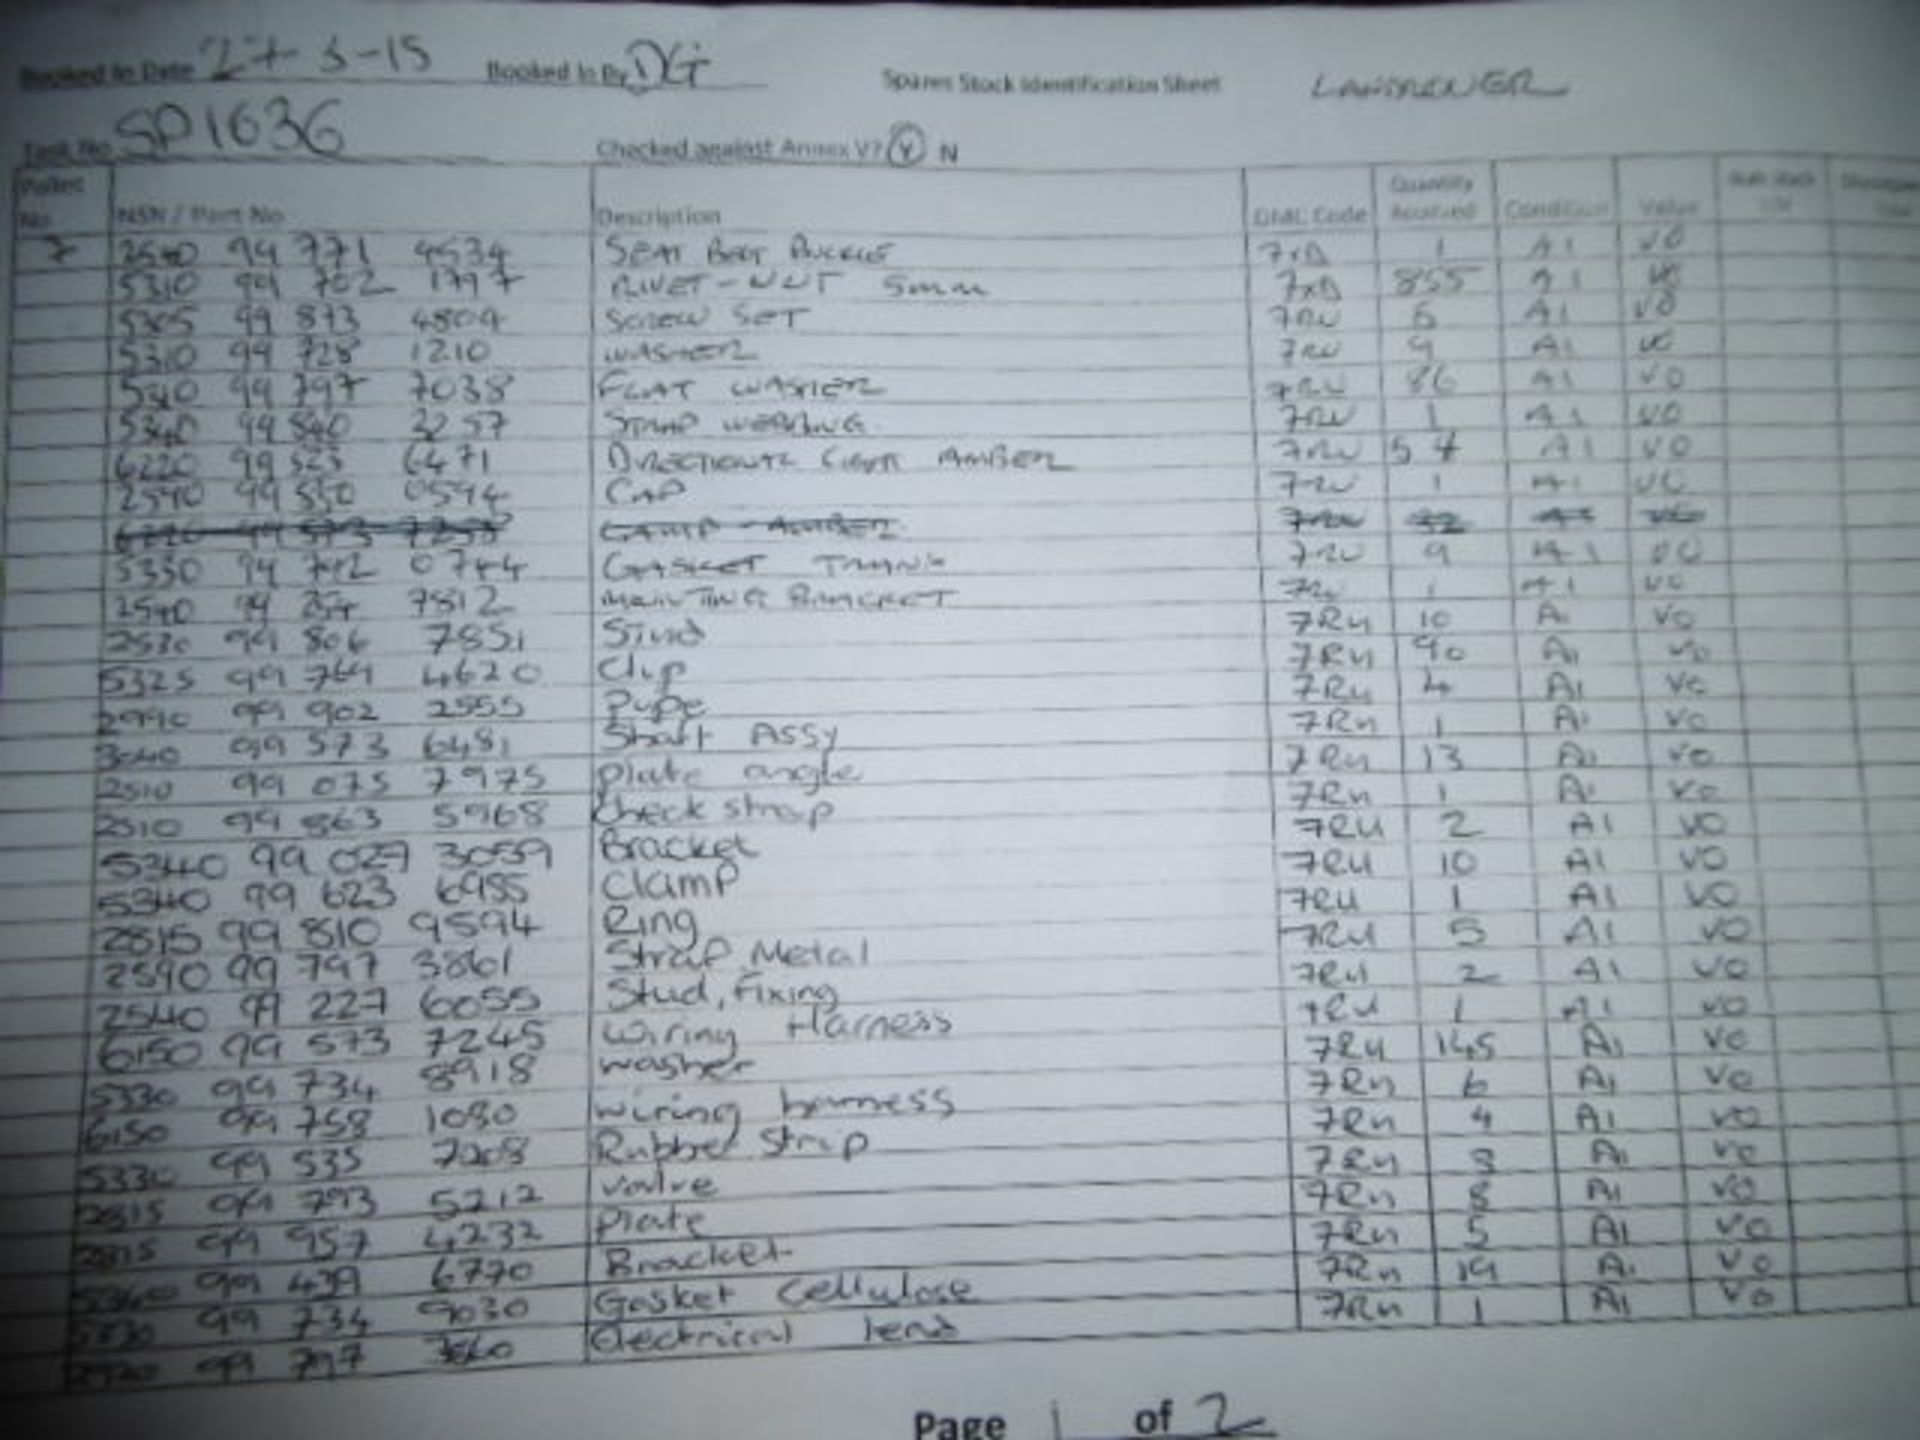 Booked In Date 27-3-15 Booked In By DG Spares Stock Identification Sheet LANDROVER
Task No SP1636 Checked against Annex V? Y N
Pallet No NSN / Part No Description DMC Code Quantity Received Condition Value
7 2540 99 771 4534 SEAT BELT BUCKLE 7XD 1 A1 V0
5310 99 702 1797 RIVET-NUT 5mm 7XD 855 A1 V0
5305 99 873 4809 SCREW SET 7RU 6 A1 V0
5310 99 728 1210 WASHER 7RU 9 A1 V0
5310 99 797 7038 FLAT WASHER 7RU 86 A1 V0
5340 99 840 3257 STRAP WEBBING 7RU 1 A1 V0
6220 99 6471 DIRECTIONAL LIGHT AMBER 7RU 54 A1 V0
2590 99 550 0594 CAP 7RU 1 A1 V0
LAMP AMBER 7RU 32 A1 V0
5330 99 742 0744 GASKET 7RU 9 A1 V0
2540 99 7812 MOUNTING BRACKET 7RU 1 A1 V0
2530 99 806 7851 Stud 7RU 10 A1 V0
5325 99 769 4620 Clip 7RU 90 A1 V0
2990 99 902 2555 Pipe 7RU 4 A1 V0
3040 99 573 6481 Shaft ASSY 7RU 1 A1 V0
2510 99 075 7975 plate angle 7RU 13 A1 V0
2510 99 863 5968 Check strap 7RU 1 A1 V0
5340 99 027 3059 Bracket 7RU 2 A1 V0
5340 99 623 6955 Clamp 7RU 10 A1 V0
2815 99 810 9594 Ring 7RU 1 A1 V0
2590 99 797 3861 Strap Metal 7RU 5 A1 V0
2540 99 227 6055 Stud, Fixing 7RU 2 A1 V0
6150 99 573 7245 Wiring Harness 7RU 1 A1 V0
5330 99 734 8918 washer 7RU 145 A1 V0
6150 99 758 1080 wiring harness 7RU 6 A1 V0
5330 99 535 7208 Rubber Strip 7RU 4 A1 V0
2815 99 793 5212 valve 7RU 3 A1 V0
2815 99 957 4232 Plate 7RU 8 A1 V0
5340 99 439 6770 Bracket 7RU 5 A1 V0
5330 99 734 9030 Gasket Cellulose 7RU 19 A1 V0
2920 99 797 Electrical lead 7RU 1 A1 V0
Page 1 of 2